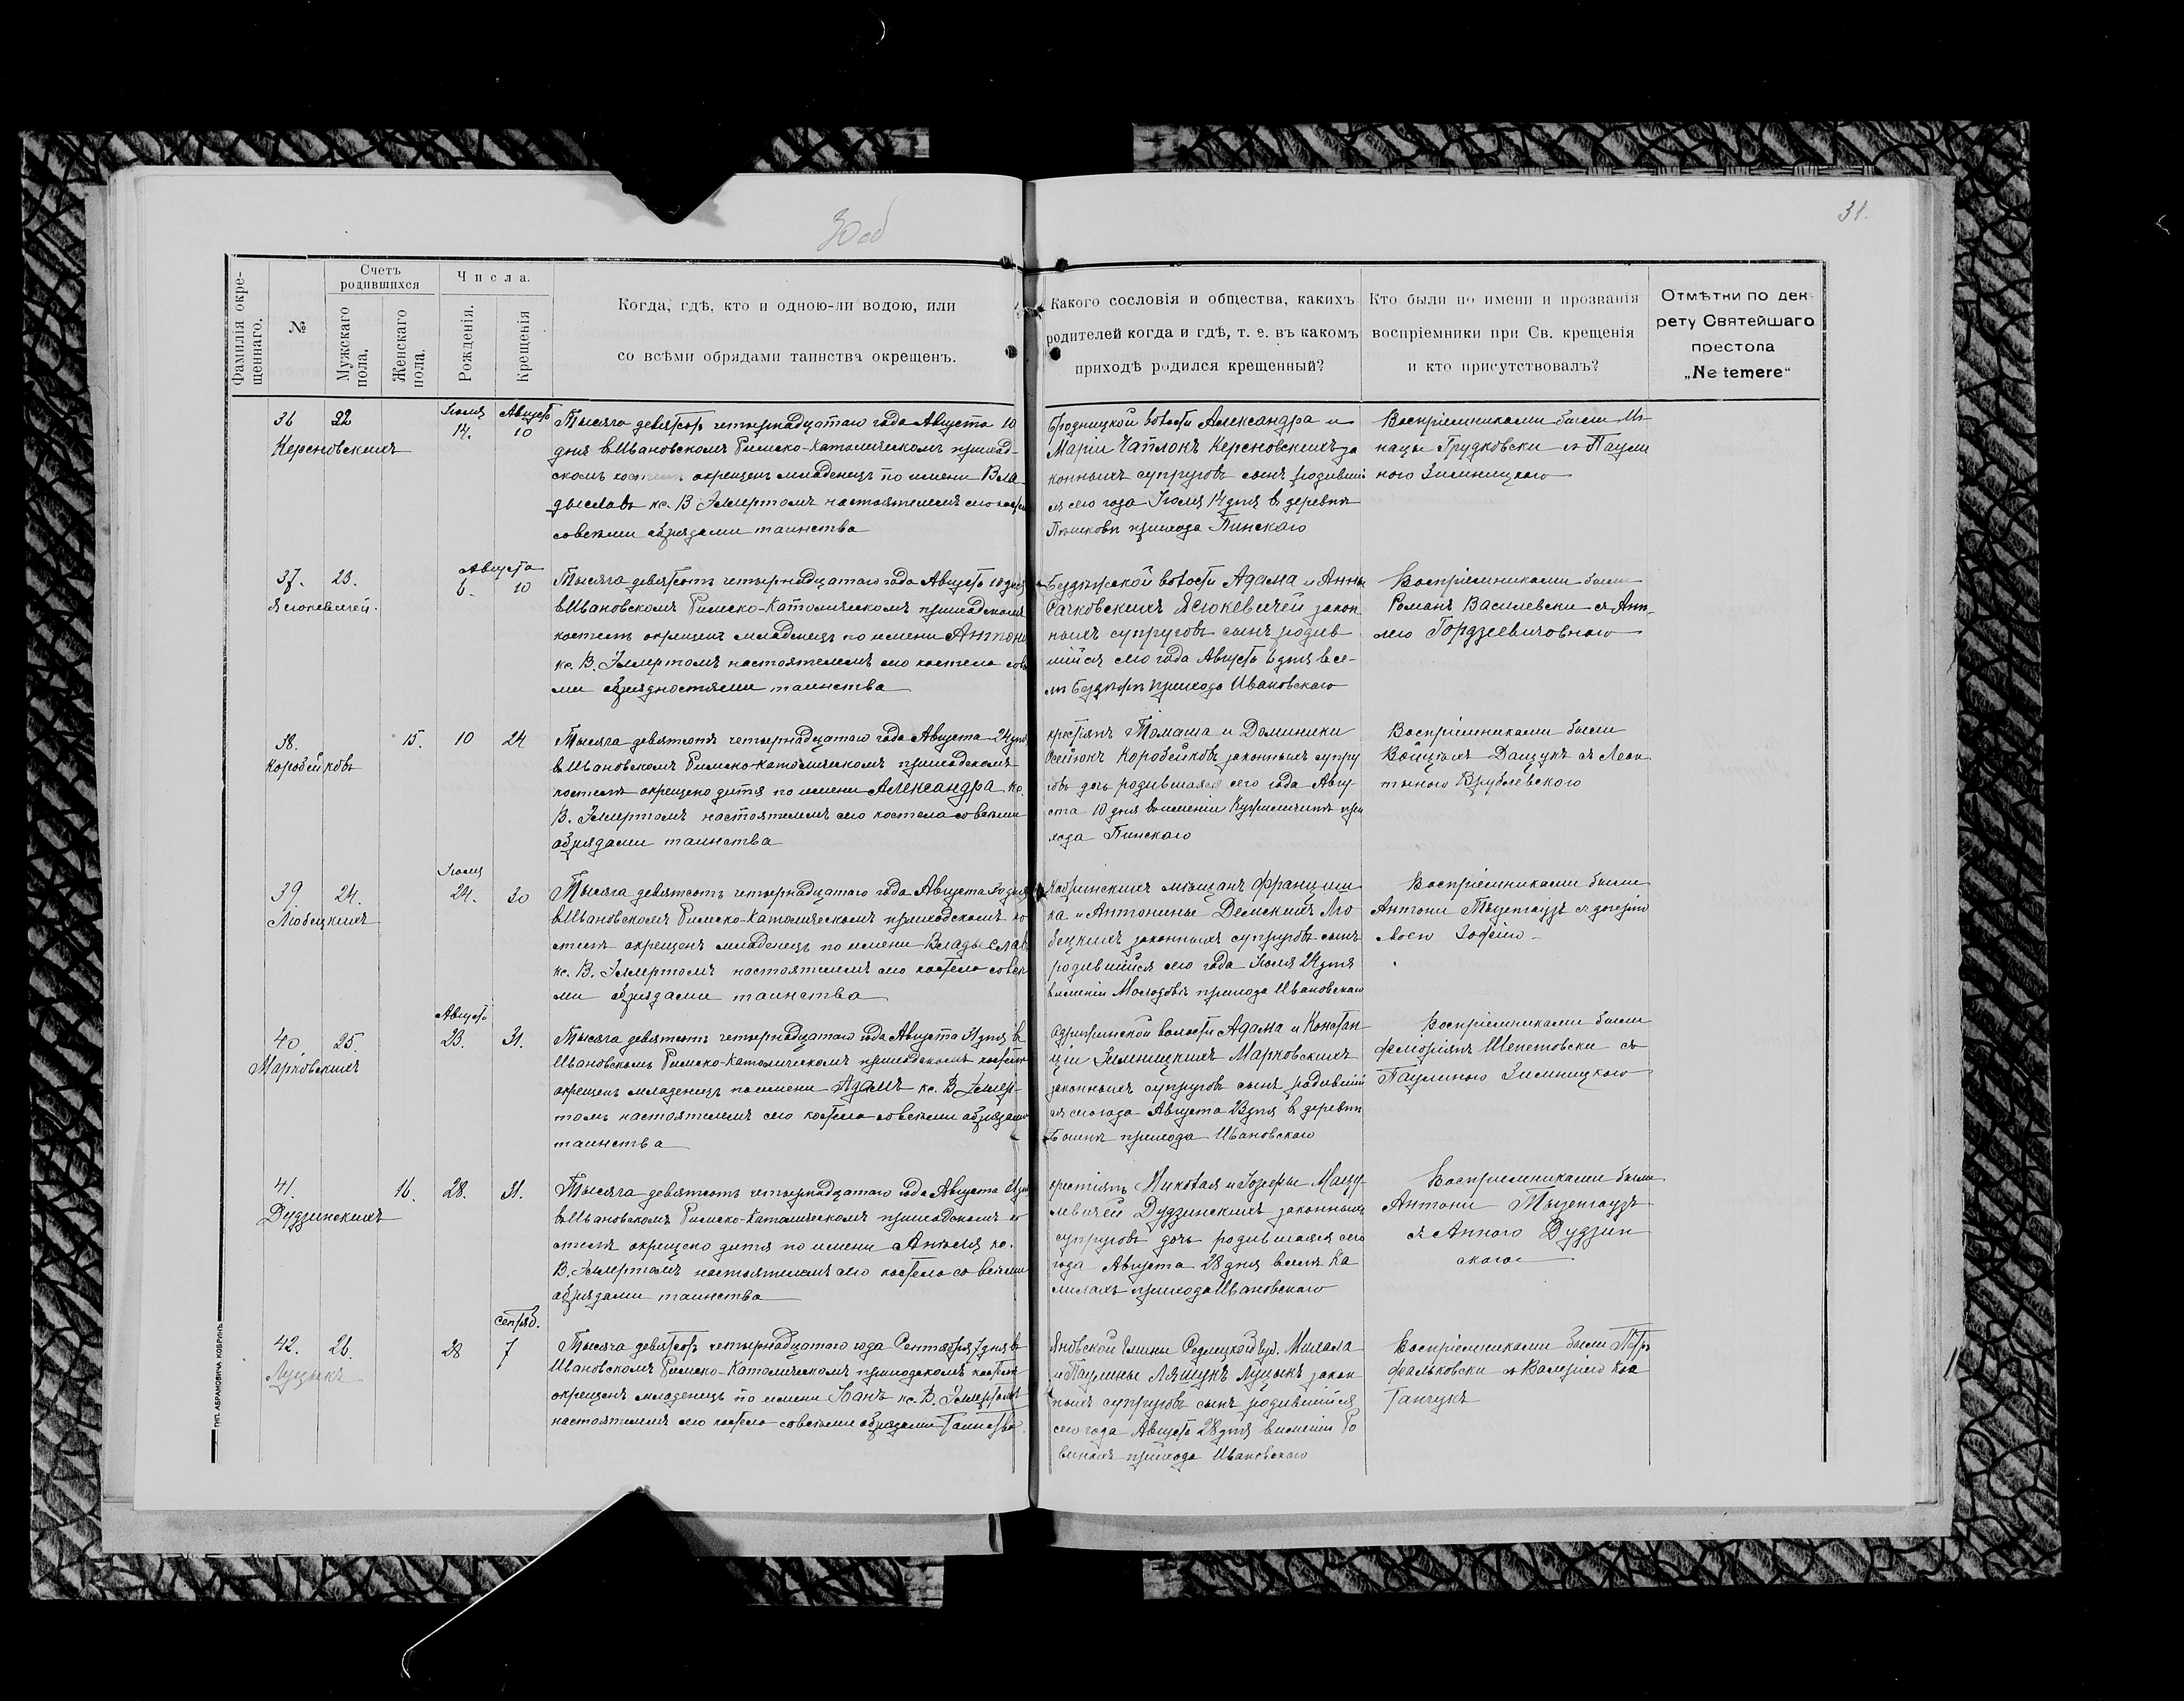 30 об
31.
Фамилія окре-
щеннаго.
№
Счетъ
родившихся
Мужскаго
пола.
Женскаго
пола.
Числа.
Рожденія.
Крещенія
Когда, гдѣ, кто и одною-ли водою, или
со всѣми обрядами таинства окрещенъ.
Какого сословія и общества, какихъ
родителей когда и гдѣ, т. е. въ какомъ
приходѣ родился крещенный?
Кто были по имени и прозванія
воспріемники при Св. крещенія
и кто присутствовалъ?
Отмѣтки по дек-
рету Святейшаго
престола
„Ne temere“
36 22 Іюля 14. Августа 10
Керсновскихъ
Тысяча девятсотъ четырнадцатаго года Августа 10
дня въ Ивановскомъ Римско-Католическомъ приход-
скомъ костелѣ окрещенъ младенецъ по имени Вла-
дыславъ кс. В. Эллертомъ настоятелемъ сего костела
со всѣми обрядами таинства
Бродницкой волости Александра и
Маріи Чаплюкъ Керсновскихъ за
конныхъ супруговъ сынъ родивші
ся сего года Іюля 14 дня въ деревнѣ
прихода Пинскаго
Воспріемниками были Иг
нацы Грудковски съ Паули
ною Зимницкою
37. 23. Августа 6. 10
Ясюкевичей.
Тысяча девятсотъ четырнадцатаго года Августа 10 дня
въ Ивановскомъ Римско-Католическомъ приходскомъ
костелѣ окрещенъ младенецъ по имени Антони
кс. В. Эллертомъ настоятелемъ сего костела со всѣ
ми обрядностями таинства
Бездѣжской волости Адама и Анны
Рачковскихъ Ясюкевичей закон
ныхъ супруговъ сынъ родив
шійся сего года Августа 6 дня въ се-
лѣ Бездѣжѣ прихода Ивановскаго
Воспріемниками были
Романъ Василевски съ
Гордзеевичовною
38. 15. 10 24
Коробейковъ
Тысяча девятсотъ четырнадцатаго года Августа 24 дня
въ Ивановскомъ Римско-Католическомъ приходскомъ
костелѣ окрещено дитя по имени Александра кс.
В. Эллертомъ настоятелемъ сего костела со всѣми
обрядами таинства
крестьянъ Томаша и Доминики
Коробейковъ законныхъ супру
говъ дочь родившаяся сего года Авгу
ста 10 дня въ имѣніи при
хода Пинскаго
Воспріемниками были
Войцѣхъ Дащукъ съ Леон
тыною Врублевского
39. 24. Іюля 24. 30
Любецкихъ
Тысяча девятсотъ четырнадцатаго года Августа 30 дня
въ Ивановскомъ Римско-Католическомъ приходскомъ ко
стелѣ окрещенъ младенецъ по имени Владыславъ
кс. В. Эллертомъ настоятелемъ сего костела со всѣ
ми обрядами таинства
Кобринскихъ мѣщанъ Францишка
ка и Антонины Демскихъ Лю
бецкихъ законныхъ супруговъ сынъ
родившійся сего года Іюля 24 дня
въ имѣніи Молодовѣ прихода Ивановскаго
Воспріемниками были
Антони съ дочерью
своею Зофіею
40 25. Августа 23. 31.
Марковскихъ
Тысяча девятсотъ четырнадцатаго года Августа 31 дня въ
Ивановскомъ Римско-Католическомъ приходскомъ костелѣ
окрещенъ младенецъ по имени Адамъ кс. В. Эллер-
томъ настоятелемъ сего костела со всѣми обрядами
таинства
Одрижинской волости Адама и Констан
ціи Зимницкихъ Марковскихъ
законныхъ супруговъ сынъ родивший
ся сего года Августа 23 дня въ деревнѣ
прихода Ивановскаго
Воспріемниками были
Шепетовски съ
Паулиною Зимницкою
41. 16. 28. 31.
Дудзинскихъ
Тысяча девятсотъ четырнадцатаго года Августа 31 дня
въ Ивановскомъ Римско-Католическомъ приходскомъ ко
стелѣ окрещено дитя по имени Анѣля кс.
В. Эллертомъ настоятелемъ сего костела со всѣми
обрядами таинства
крестьянъ Николая и Іозефы Мацу
левичей Дудзинскихъ законныхъ
супруговъ дочь родившаяся сего
года Августа 28 дня въ
прихода Ивановскаго
Воспріемниками были
Антони
съ Анною Дудзин
скою
42. 26. 28 Сентяб. 7
Луцыкъ
Тысяча девятсотъ четырнадцатаго года Сентября 7 дня въ
Ивановскомъ Римско-Католическомъ приходскомъ костелѣ
окрещенъ младенецъ по имени Іоанъ кс. В. Эллертомъ
настоятелемъ сего костела со всѣми обрядами таинства
Яновской гмины Седлецкой губ. Михала
и Паулины Ляшукъ Луцыкъ закон
ныхъ супруговъ сынъ родившійся
сего года Августа 28 дня въ имѣніи Ро
винахъ прихода Ивановскаго
Воспріемниками были Петръ
Фальковски съ Валеріею
ТИП. АБРАМОВИЧА КОБРИНЪ